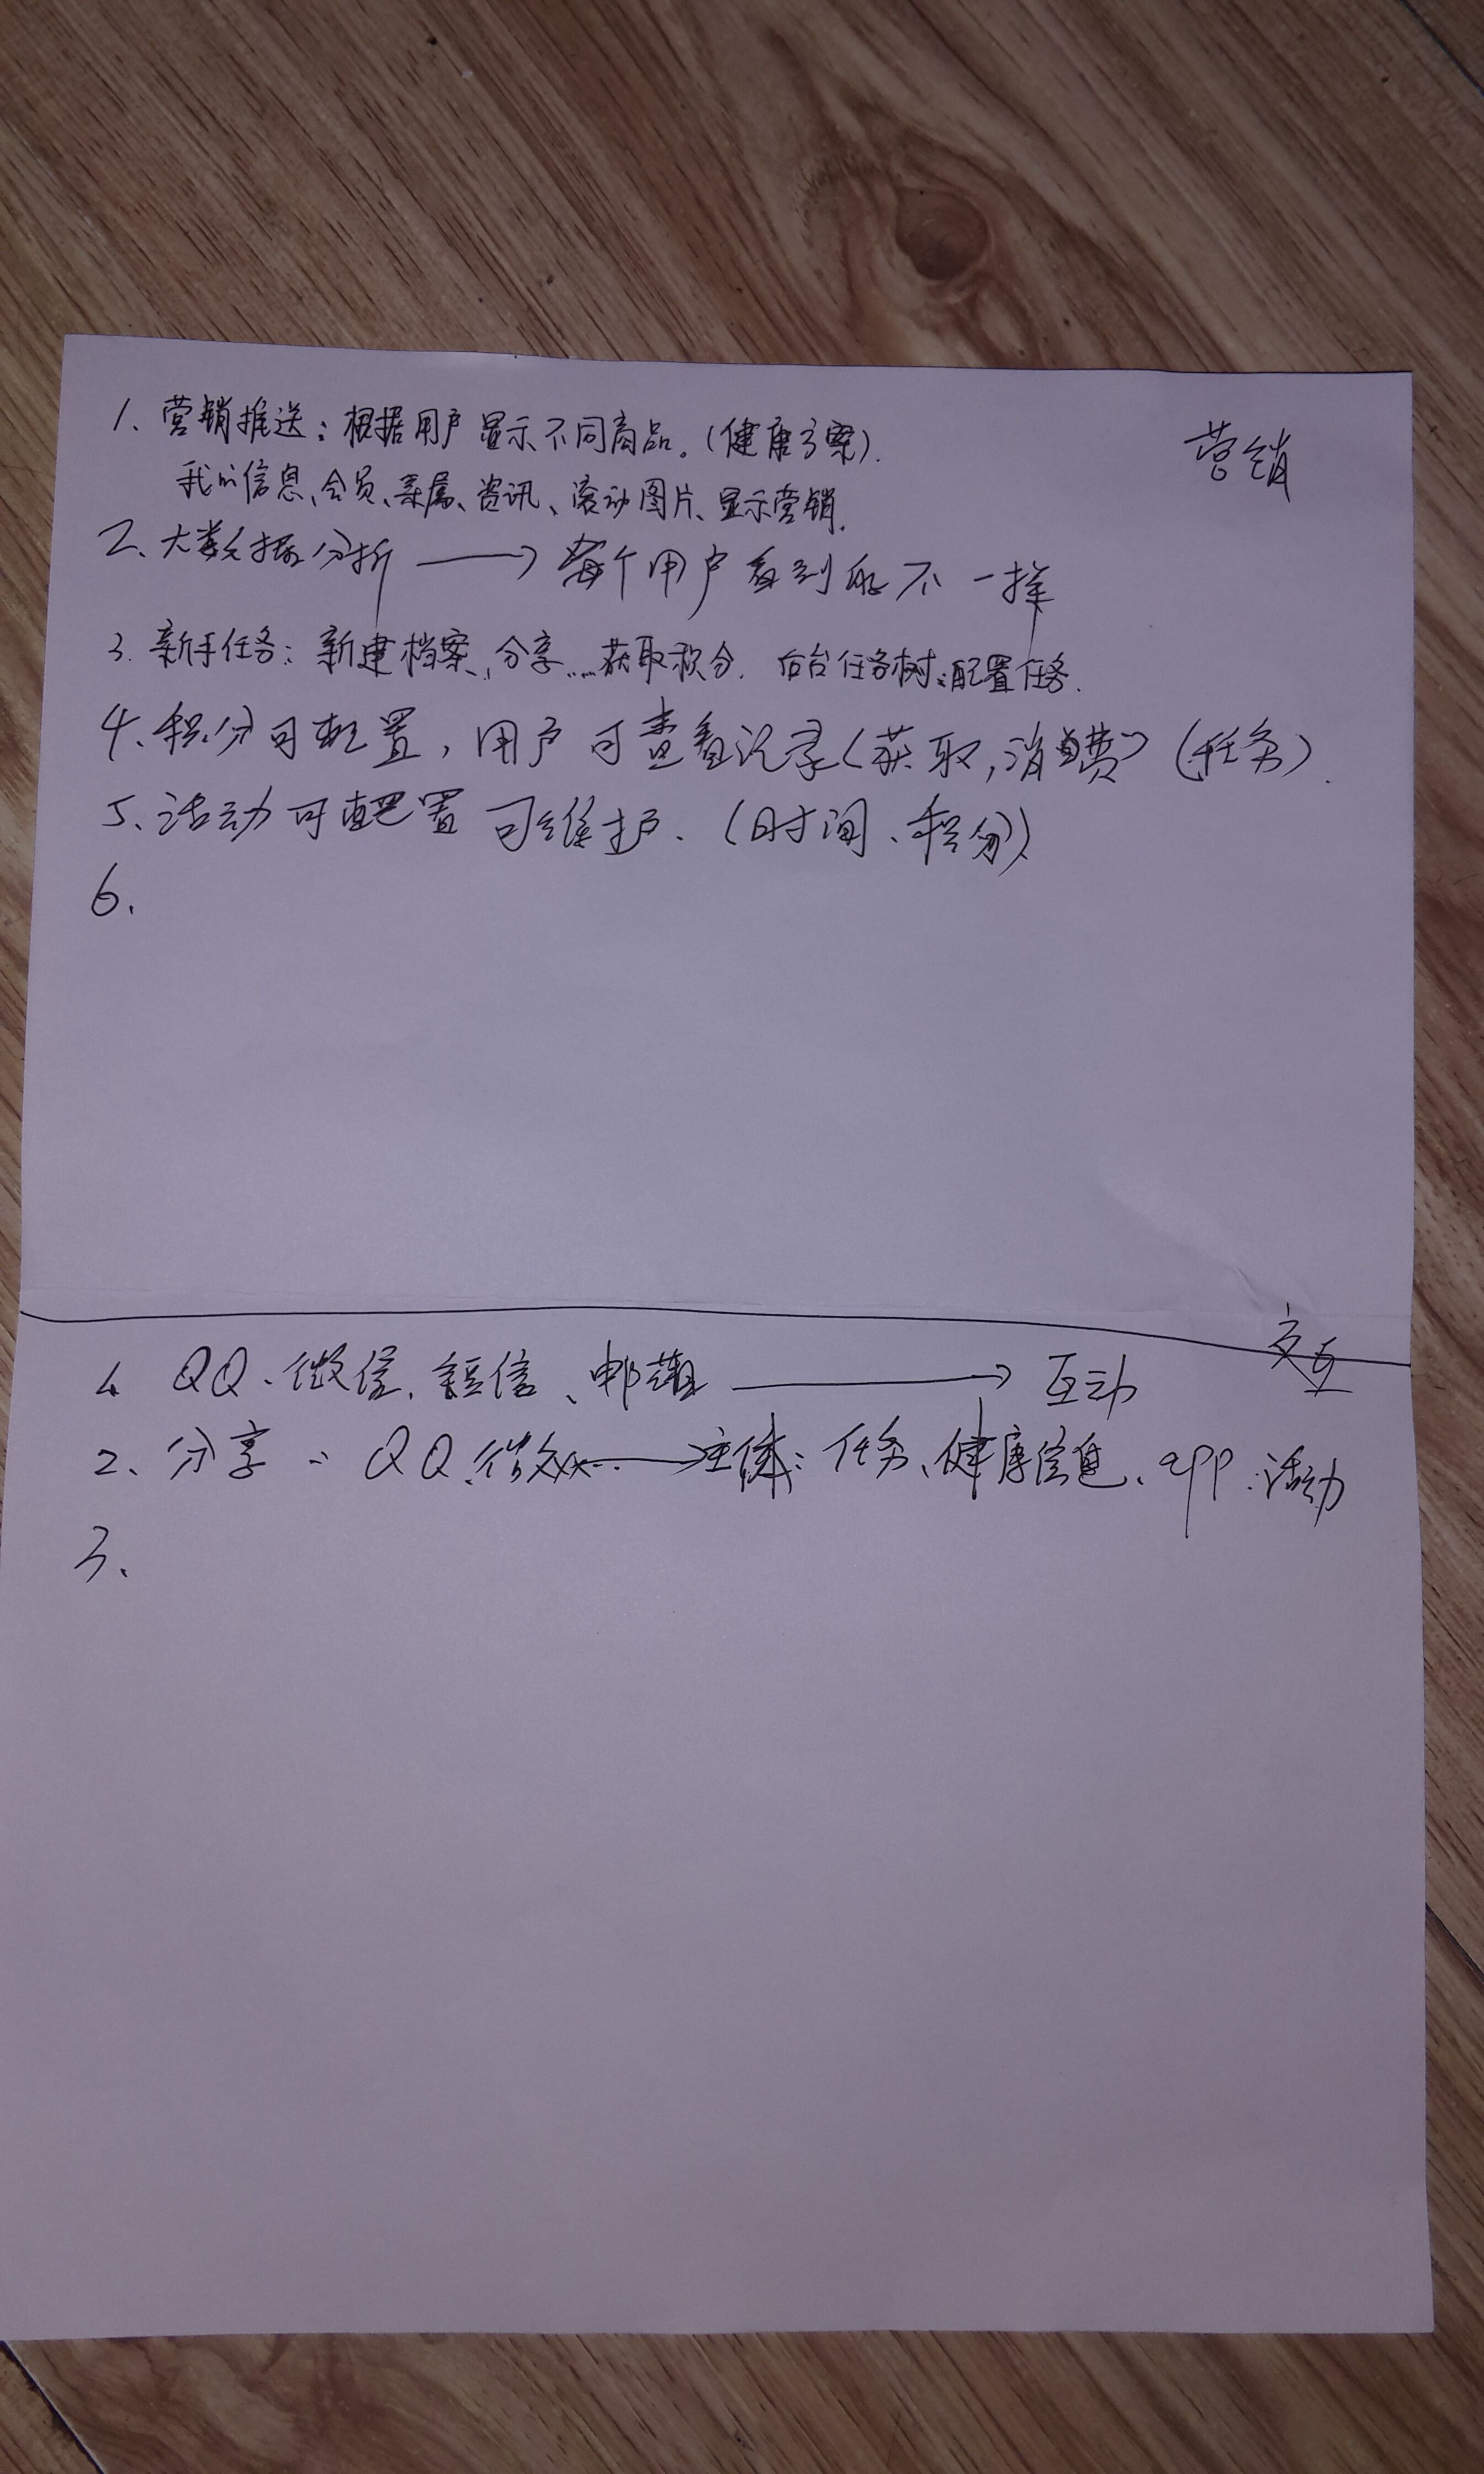 营销
1、营销推送：根据用户显示不同商品。(健康方案).
我的信息、会员、亲属、资讯、滚动图片、显示营销.
2、大数据分析 ——→ 每个用户看到的不一样
3. 新手任务：新建档案、分享……获取积分. 后台任务树：配置任务.
4、积分可配置，用户可查看记录(获取,消费) (任务).
5、活动可配置 可维护. (时间、积分)、
6.
交互
1. QQ、微信、短信、邮箱 ——→ 互动
2、分享：QQ、微 ... ——→主体：任务、健康信息、app、活动
3、